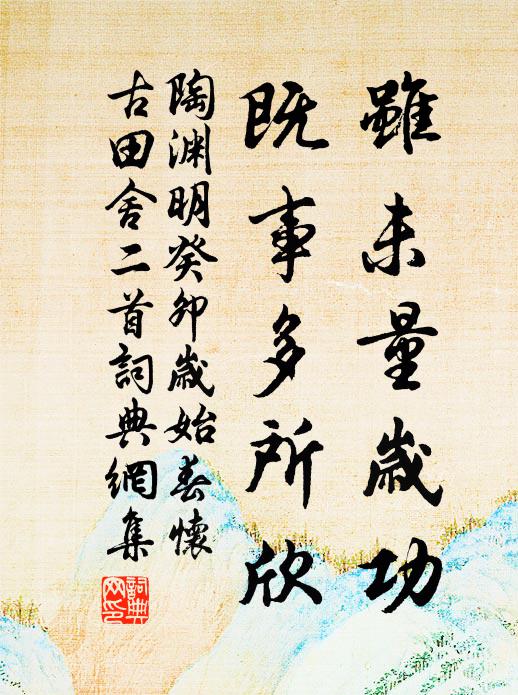 雖未量歲功
既事多所欣
陶淵明癸卯歲始春懷
古田舍二首詞典網集
詞典
網印